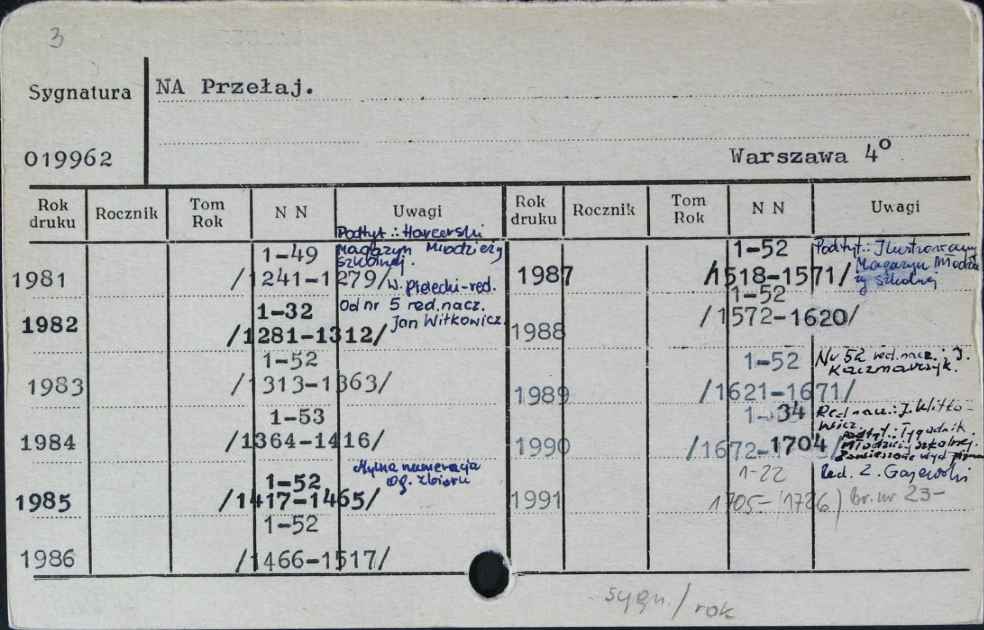 3
Sygnatura
NA Przełaj.
019962
Warszawa 4°
Rok druku Rocznik Tom Rok N N Uwagi
Rok druku Rocznik Tom Rok N N Uwagi
1981 1-49 /1241-1279/
Podtyt.: Harcerski
Magazyn Młodzieży
szkolnej.
W. Pielecki-red.
1982 1-32 /1281-1312/
Od nr 5 red.nacz.
Jan Witkowicz.
1983 1-52 /1313-1363/
1984 1-53 /1364-1416/
1985 1-52 /1417-1465/
Mylna numeracja
og. zbioru
1986 1-52 /1466-1517/
1987 1-52 /1518-1571/
Podtyt.: Ilustrowany
Magazyn Młodzie
ży szkolnej
1988 1-52 /1572-1620/
1989 1-52 /1621-1671/
Nr 52 red.nacz.: J.
Kaczmarczyk.
1990 1-34 /1672-1704/
Red nacz.: J. Witko-
wicz.
Podtyt.: Tygodnik
Młodzieży szkolnej.
Zawieszone wyd.
Red. Z. Gajewski
1991 1-22 1705-(1726)
Br. nr 23-
sygn./rok